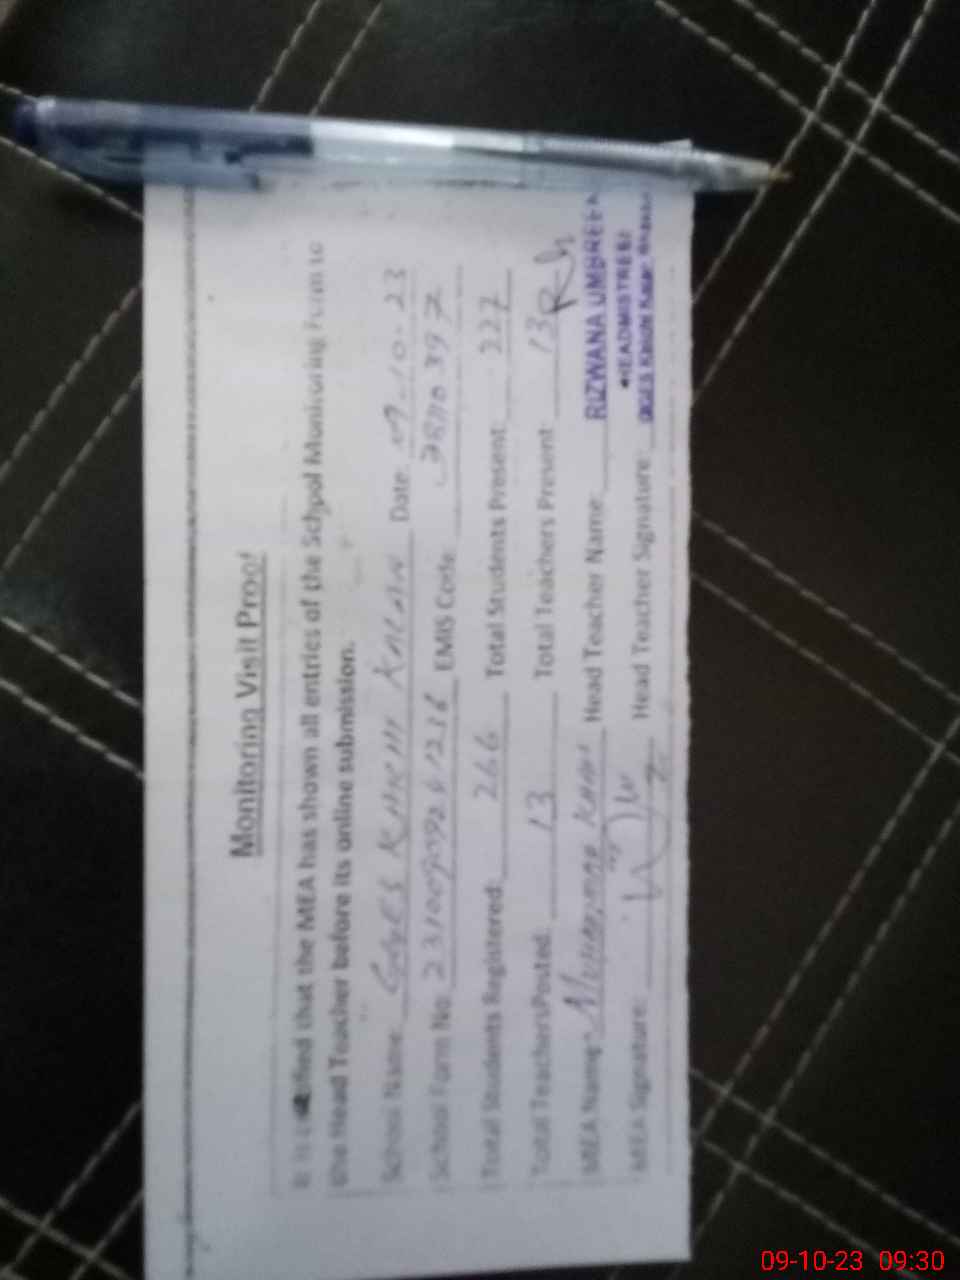 Monitoring Visit Proof
It is certified that the MEA has shown all entries of the School Monitoring Form to
the Head Teacher before its online submission.
School Name: GGES KHAKHI KALAN Date 09-10-23
School Form No: EMIS Code
Total Students Registered: 266 Total Students Present: 227
Total TeachersPosted: 13 Total Teachers Present: 13
MEA Name: Muhammad Khan Head Teacher Name: RIZWANA UMBREEN
HEADMISTRESS
MEA Signature: Head Teacher Signature:
09-10-23 09:30